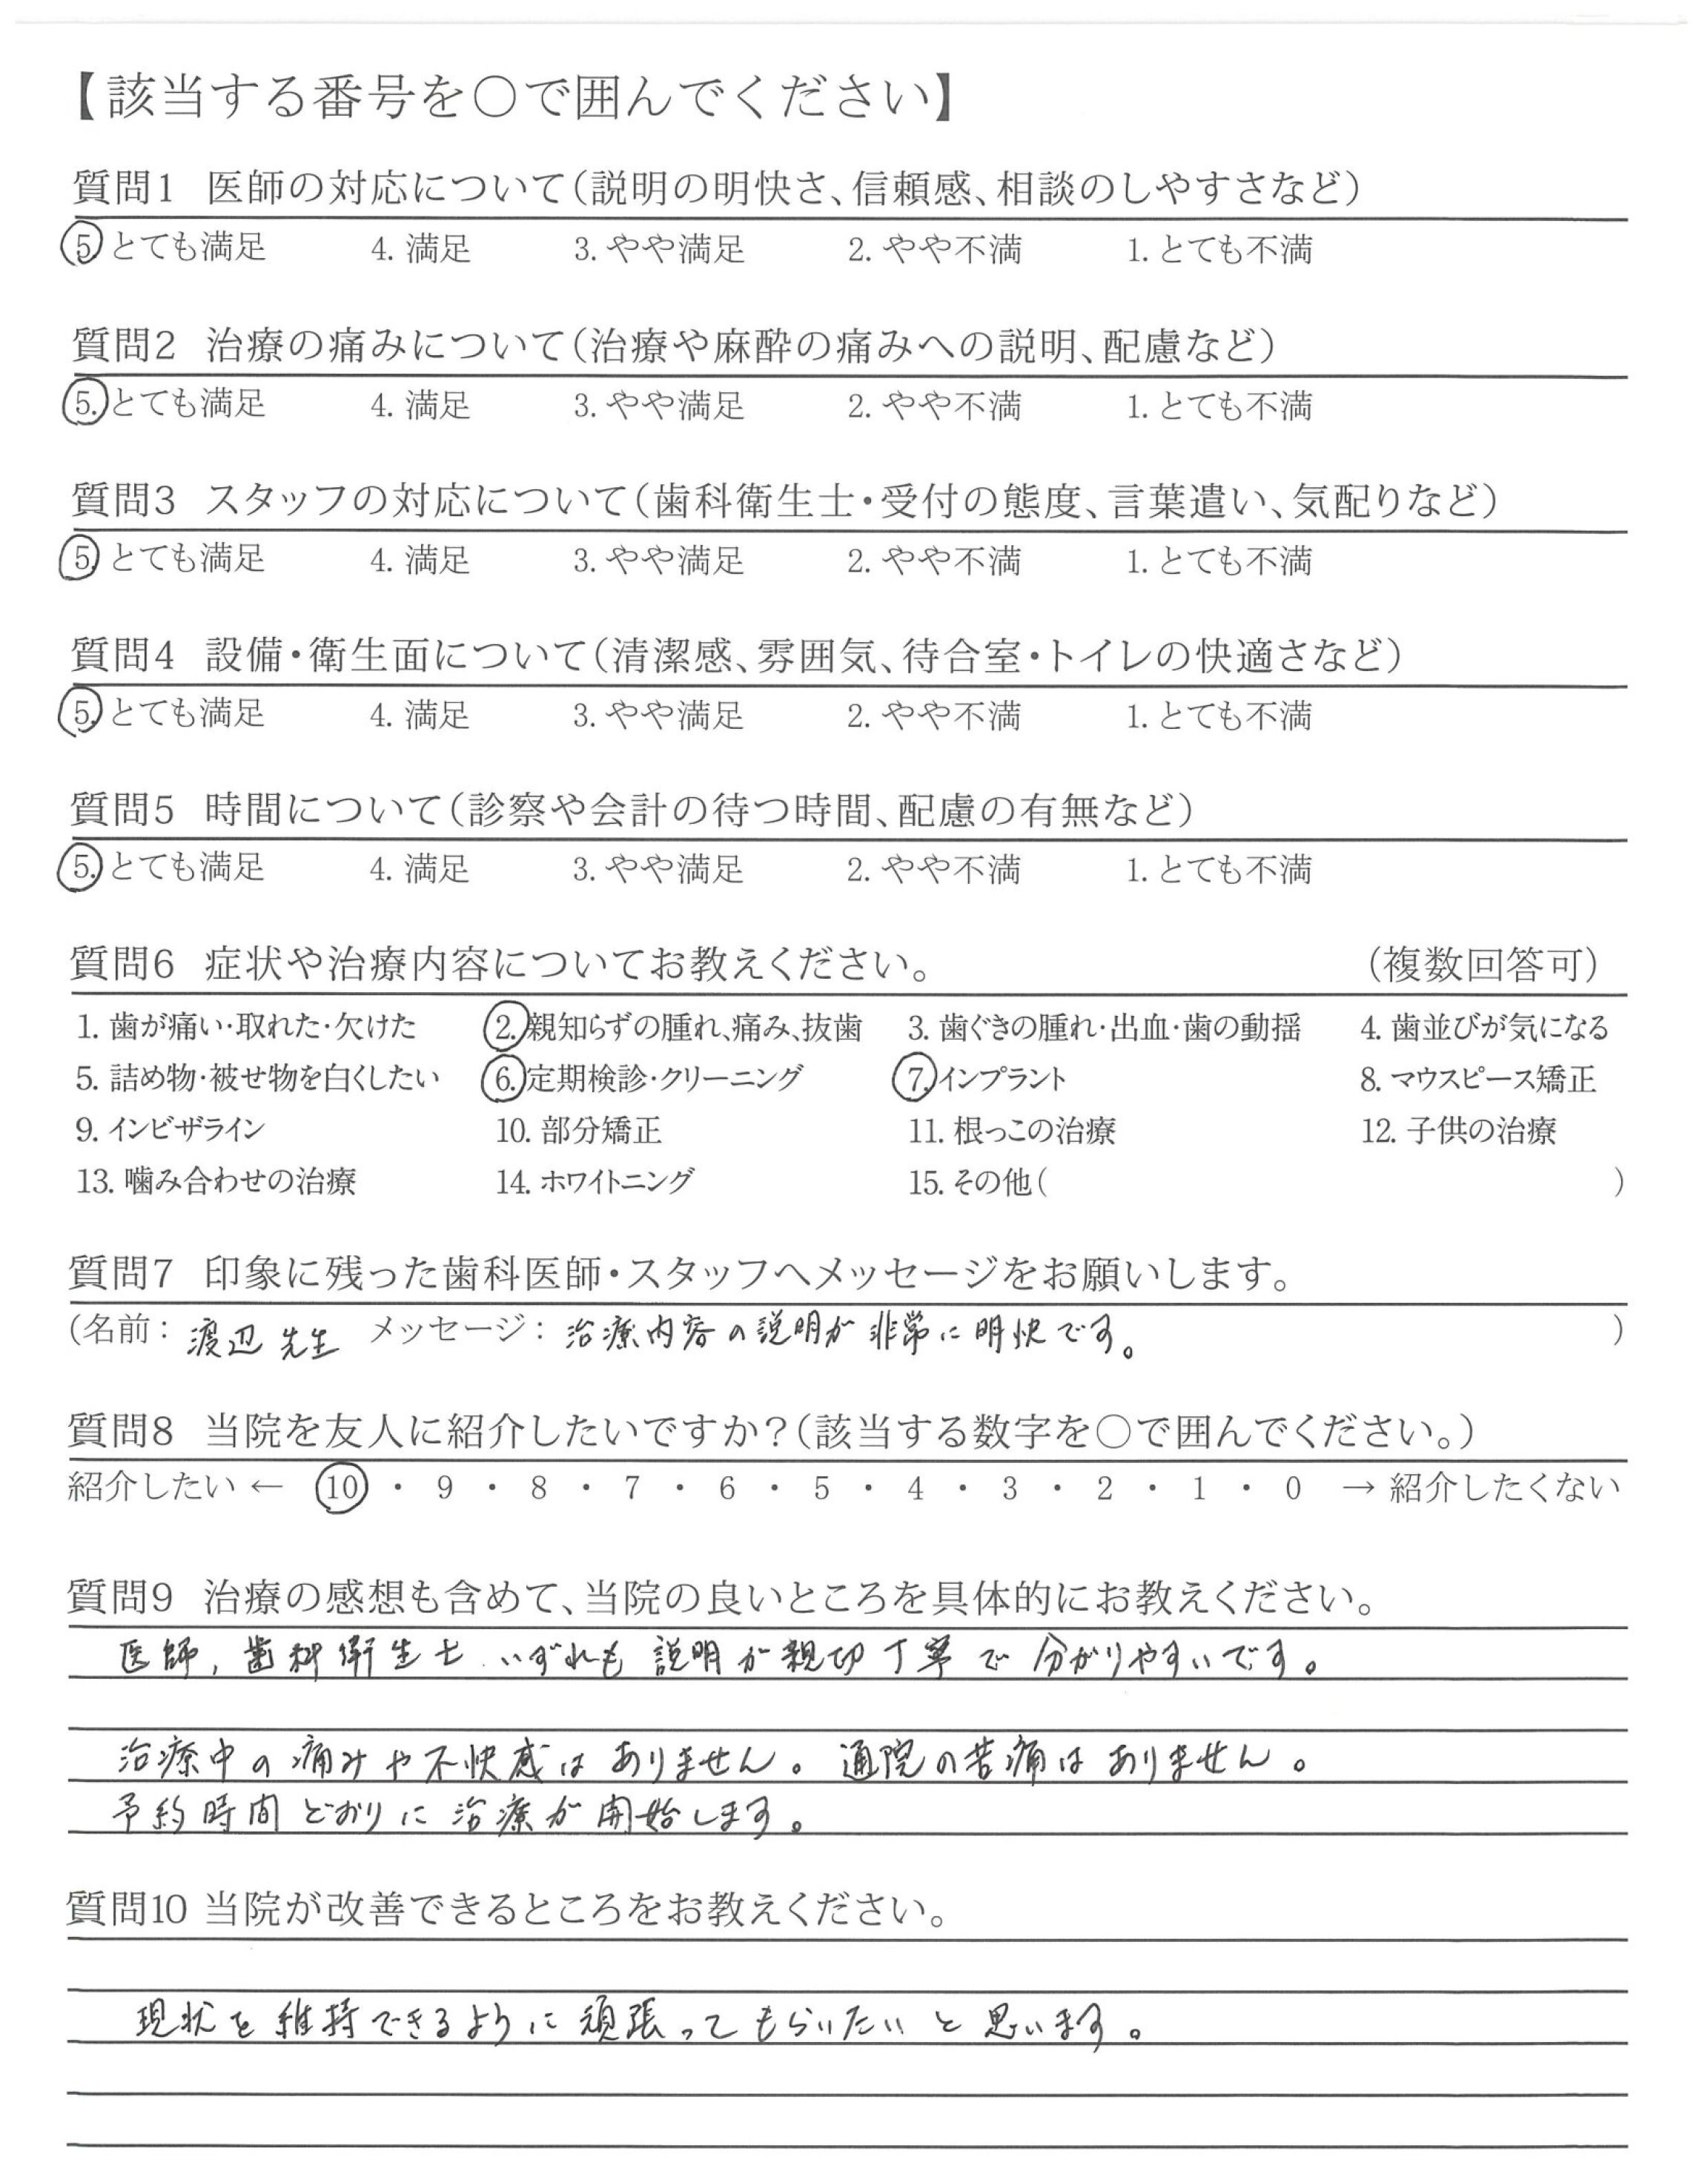 【該当する番号を○で囲んでください】
質問1 医師の対応について(説明の明快さ、信頼感、相談のしやすさなど)
5. とても満足 4. 満足 3. やや満足 2. やや不満 1. とても不満
質問2 治療の痛みについて(治療や麻酔の痛みへの説明、配慮など)
5. とても満足 4. 満足 3. やや満足 2. やや不満 1. とても不満
質問3 スタッフの対応について(歯科衛生士・受付の態度、言葉遣い、気配りなど)
5. とても満足 4. 満足 3. やや満足 2. やや不満 1. とても不満
質問4 設備・衛生面について(清潔感、雰囲気、待合室・トイレの快適さなど)
5. とても満足 4. 満足 3. やや満足 2. やや不満 1. とても不満
質問5 時間について(診察や会計の待つ時間、配慮の有無など)
5. とても満足 4. 満足 3. やや満足 2. やや不満 1. とても不満
質問6 症状や治療内容についてお教えください。 (複数回答可)
1. 歯が痛い・取れた・欠けた 2. 親知らずの腫れ、痛み、抜歯 3. 歯ぐきの腫れ・出血・歯の動揺 4. 歯並びが気になる
5. 詰め物・被せ物を白くしたい 6. 定期検診・クリーニング 7. インプラント 8. マウスピース矯正
9. インビザライン 10. 部分矯正 11. 根っこの治療 12. 子供の治療
13. 噛み合わせの治療 14. ホワイトニング 15. その他( )
質問7 印象に残った歯科医師・スタッフへメッセージをお願いします。
(名前: 渡辺 先生 メッセージ: 治療内容の説明が非常に明快です。 )
質問8 当院を友人に紹介したいですか?(該当する数字を○で囲んでください。)
紹介したい ← 10 ・ 9 ・ 8 ・ 7 ・ 6 ・ 5 ・ 4 ・ 3 ・ 2 ・ 1 ・ 0 → 紹介したくない
質問9 治療の感想も含めて、当院の良いところを具体的にお教えください。
医師, 歯科衛生士 いずれも説明が親切丁寧で分かりやすいです。
治療中の痛みや不快感はありません。通院の苦痛はありません。
予約時間どおりに治療が開始します。
質問10 当院が改善できるところをお教えください。
現状を維持できるように頑張ってもらいたいと思います。